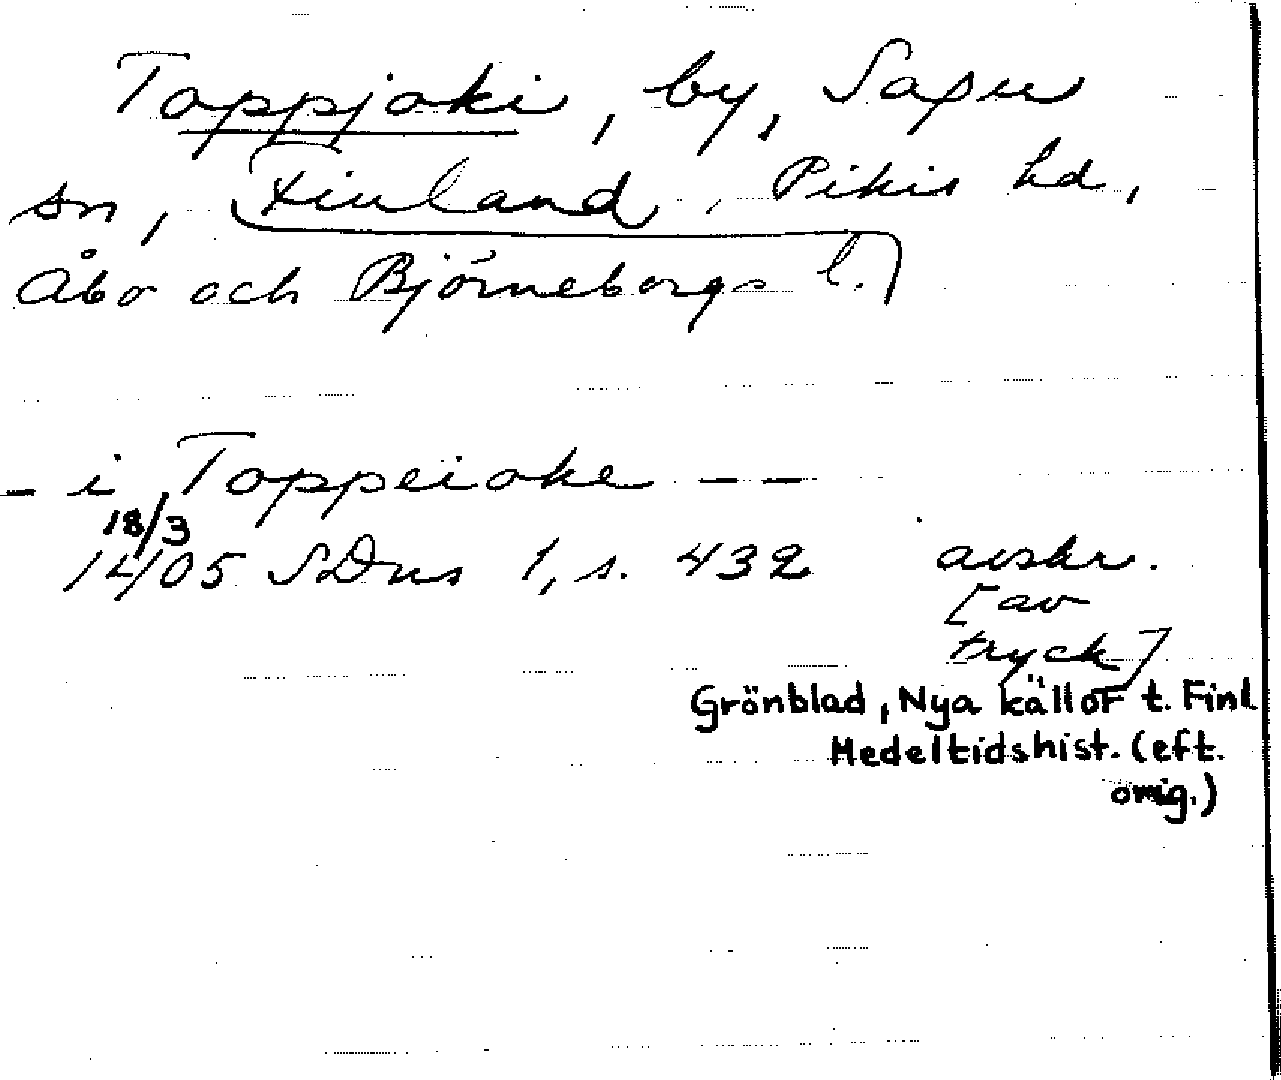 Toppjoki, by, Sagu
sn, Finland, Pikis hd,
Åbo och Björneborgs l.)
- i Toppeioke - -
18/3
1405 SDns 1, s. 432 avskr.
[av
tryck]
Grönblad, Nya källor t. Finl
Medeltidshist. (eft.
orig.)